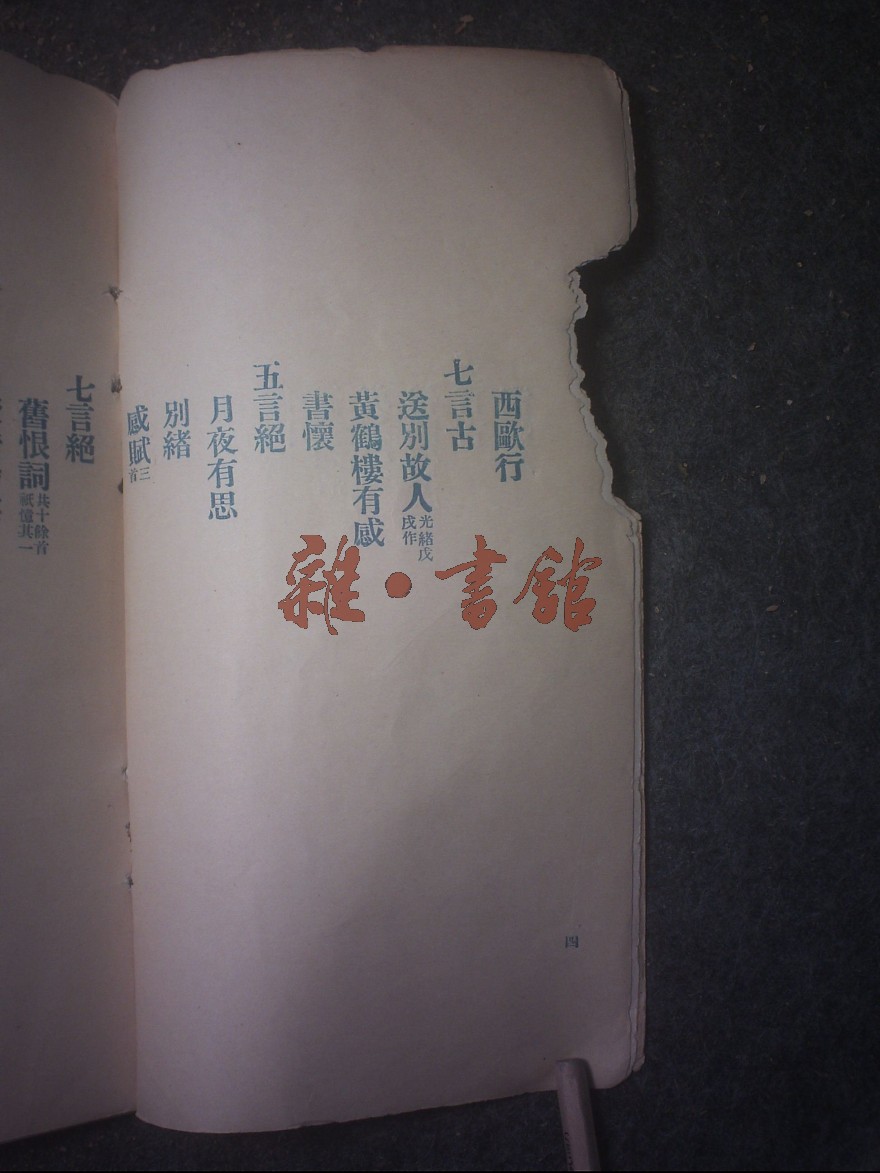 西歐行
七言古
送別故人光緒戊戌作
黃鶴樓有感
書懷
五言絕
月夜有思
別緒
感賦三首
七言絕
舊恨詞共十餘首祇憶其一
四
雜·書館